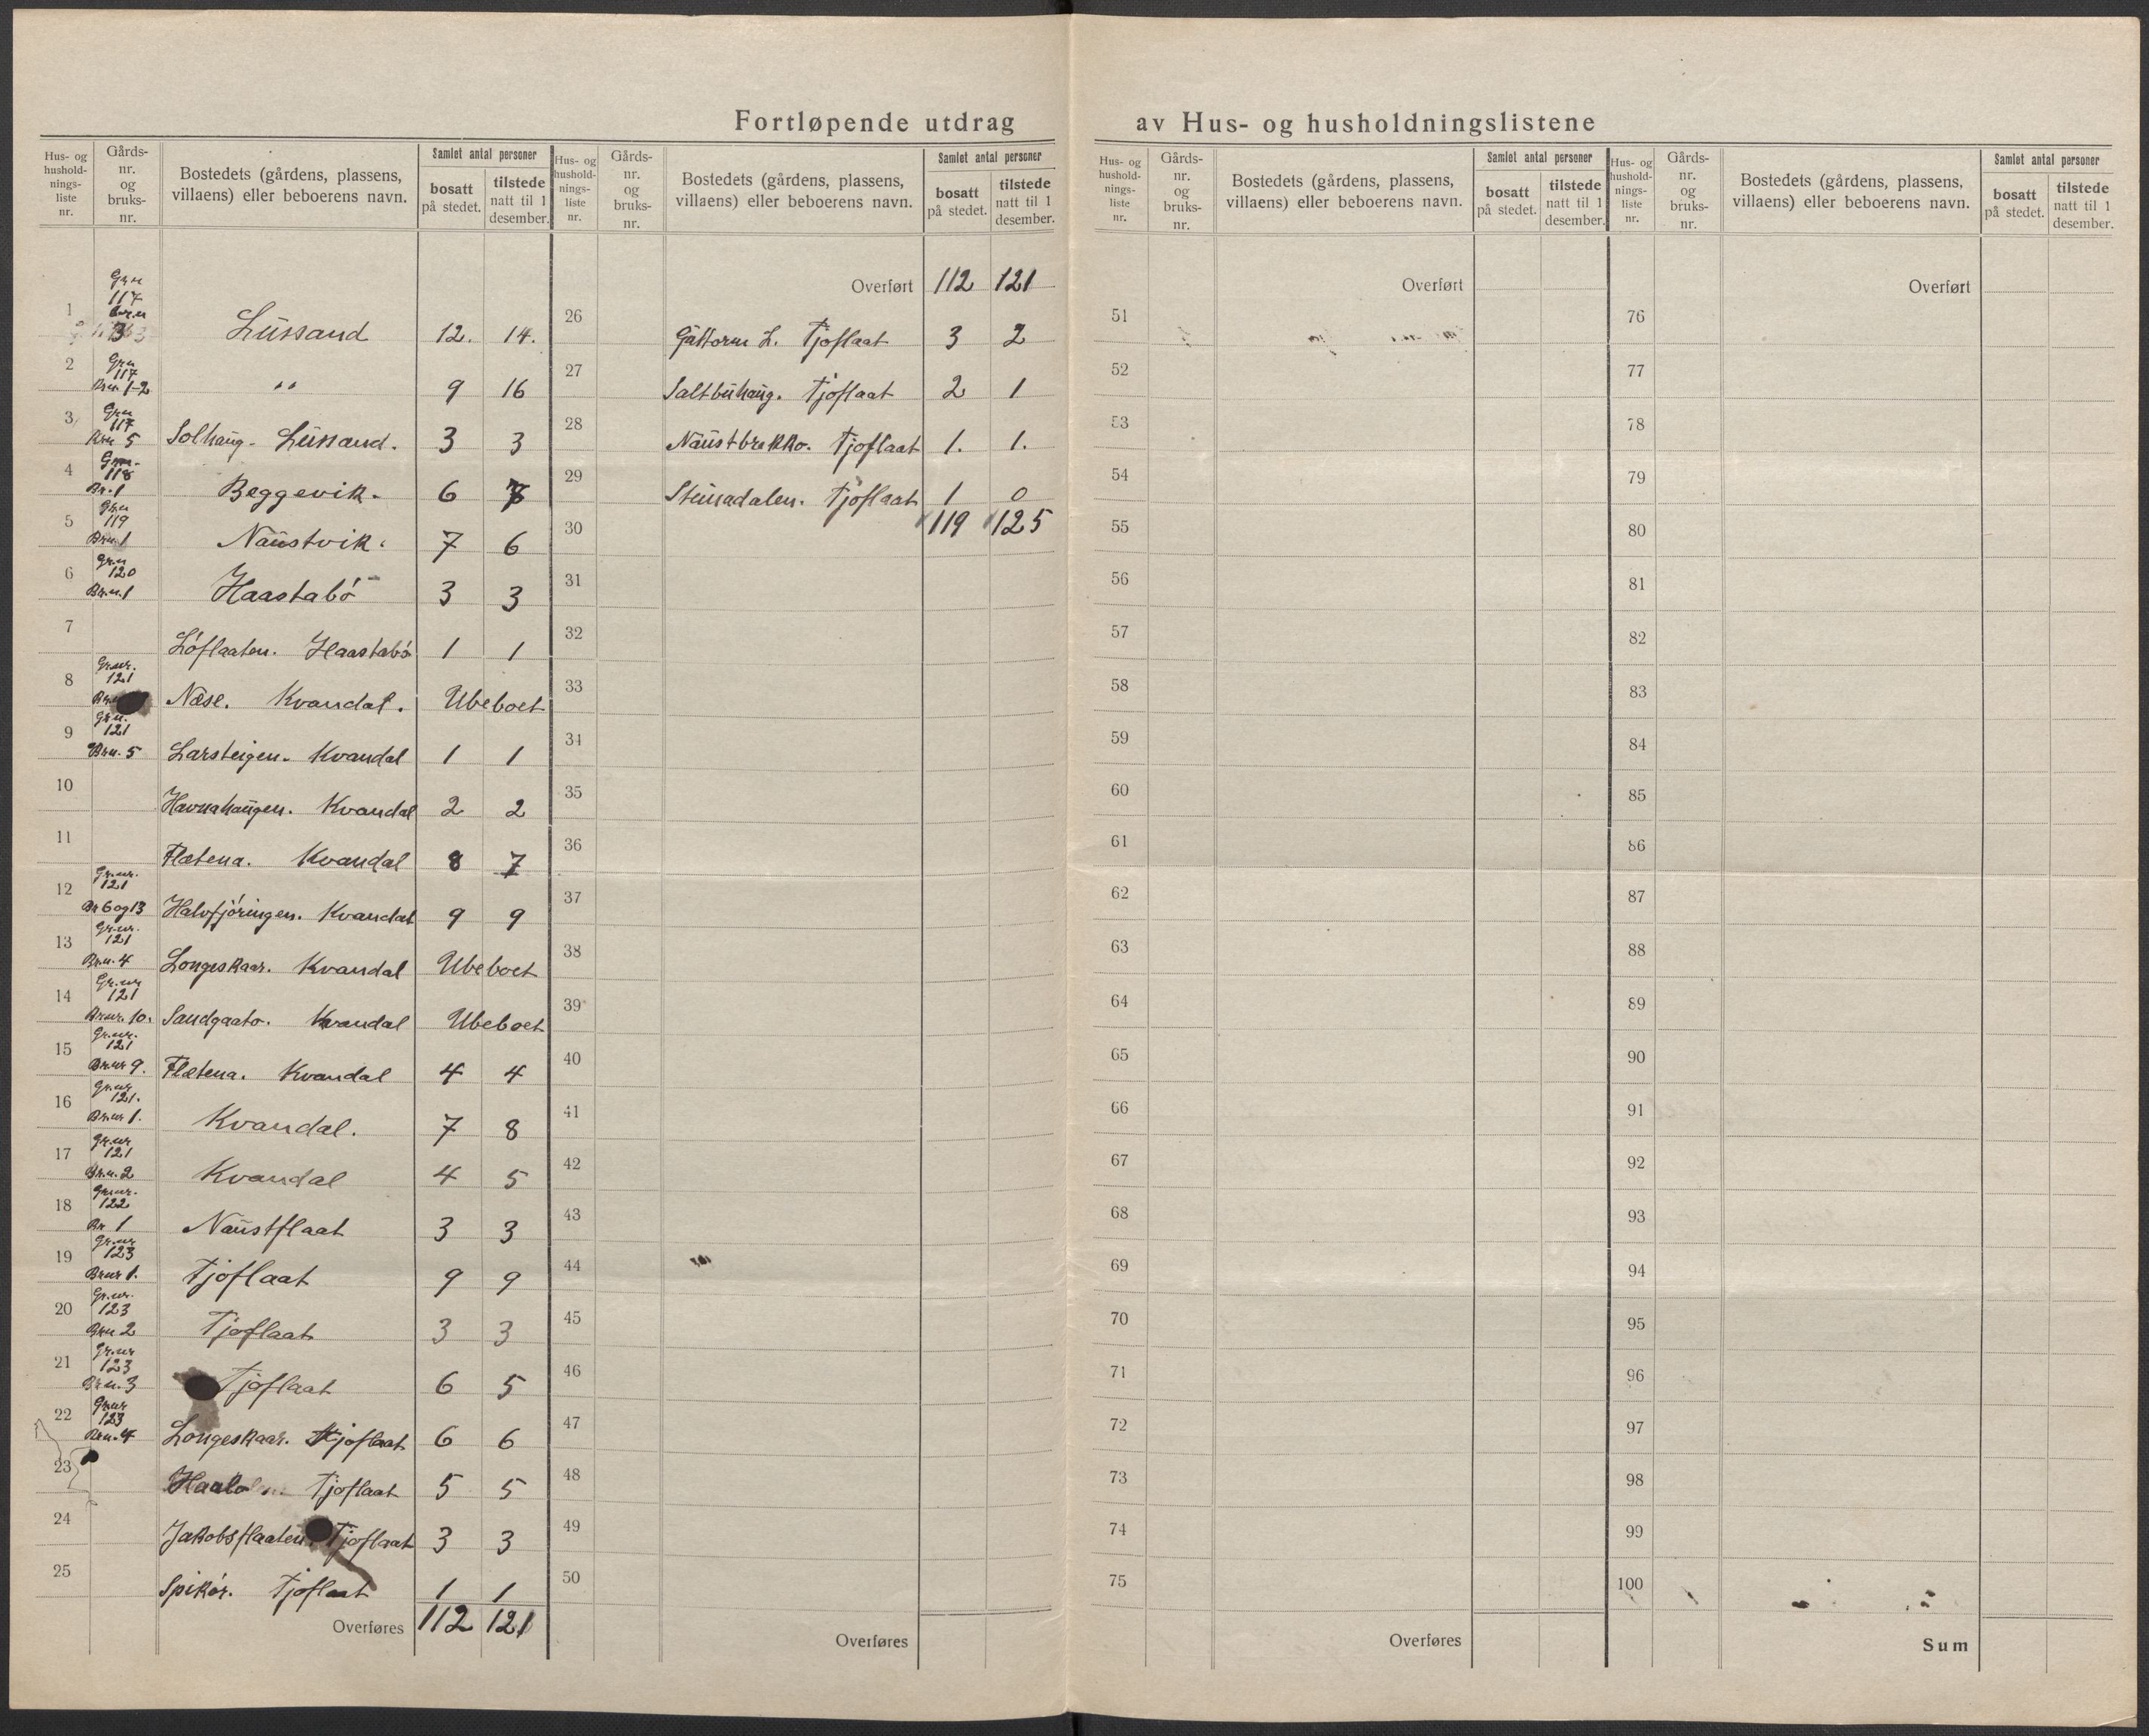 Fortløpende utdrag av Hus- og husholdningslistene
Hus- og hushold-nings-liste nr.
Gårds-nr. og bruks-nr.
Bostedets (gårdens, plassens, villaens) eller beboerens navn.
Samlet antal personer
bosatt på stedet.
tilstede natt til 1 desember.
1 Grn 117 Brn 3 Lussand 12. 14.
2 Grn 117 Brn. 1-2 " 9 16
3 Grn 117 Brn 5 Solhaug. Lussand. 3 3
4 Grn. 118 Br. 1 Beggevik. 6 7
5 Grn 119 Brn. 1 Naustvik. 7 6
6 Gr.n 120 Br.n. 1 Haastabø 3 3
7 Løflaaten. Haastabø 1 1
8 Gr.nr. 121 Næse. Kvandal. Ubeboet
9 Gr.n. 121 Brn. 5 Larsteigen. Kvandal 1 1
10 Havnahaugen. Kvandal 2 2
11 Flætena. Kvandal 8 7
12 Gr.nr. 121 Br 6 og 13 Halvfjøringen. Kvandal 9 9
13 Gr.nr. 121 Br.n. 4 Longeskaar. Kvandal Ubeboet
14 Gr.nr 121 Br.nr. 10. Sandgaato. Kvandal Ubeboet
15 Gr.nr. 121 Br.nr 9. Flætena. Kvandal 4 4
16 Gr.nr 121. Br.nr 1. Kvandal. 7 8
17 Gr.nr 121 Br.n. 2 Kvandal 4 5
18 Gr.nr. 122 Br 1 Naustflaat 3 3
19 Gr.nr 123 Br.nr 1. Tjoflaat 9 9
20 Gr.nr. 123 Brn 2 Tjoflaat 3 3
21 Gr.nr 123 Br.n. 3 Tjoflaat 6 5
22 Gr.nr 123 Br.n. 4 Longeskaar. Tjoflaat 6 6
23 Tjoflaat 5 5
24 Jakobsflaaten. Tjoflaat 3 3
25 Spikør. Tjoflaat 1 1
Overføres 112 121
Hus- og hushold-nings-liste nr.
Gårds-nr. og bruks-nr.
Bostedets (gårdens, plassens, villaens) eller beboerens navn.
Samlet antal personer
bosatt på stedet.
tilstede natt til 1 desember.
Overført 112 121
26 Guttorm L. Tjoflaat 3 2
27 Saltbuhaug. Tjoflaat 2 1
28 Naustbrekko. Tjoflaat 1. 1.
29 Steinadalen. Tjoflaat 1 0
30 119 125
31
32
33
34
35
36
37
38
39
40
41
42
43
44
45
46
47
48
49
50
Overføres
Hus- og hushold-nings-liste nr.
Gårds-nr. og bruks-nr.
Bostedets (gårdens, plassens, villaens) eller beboerens navn.
Samlet antal personer
bosatt på stedet.
tilstede natt til 1 desember.
Overført
51
52
53
54
55
56
57
58
59
60
61
62
63
64
65
66
67
68
69
70
71
72
73
74
75
Overføres
Hus- og hushold-nings-liste nr.
Gårds-nr. og bruks-nr.
Bostedets (gårdens, plassens, villaens) eller beboerens navn.
Samlet antal personer
bosatt på stedet.
tilstede natt til 1 desember.
Overført
76
77
78
79
80
81
82
83
84
85
86
87
88
89
90
91
92
93
94
95
96
97
98
99
100
Sum